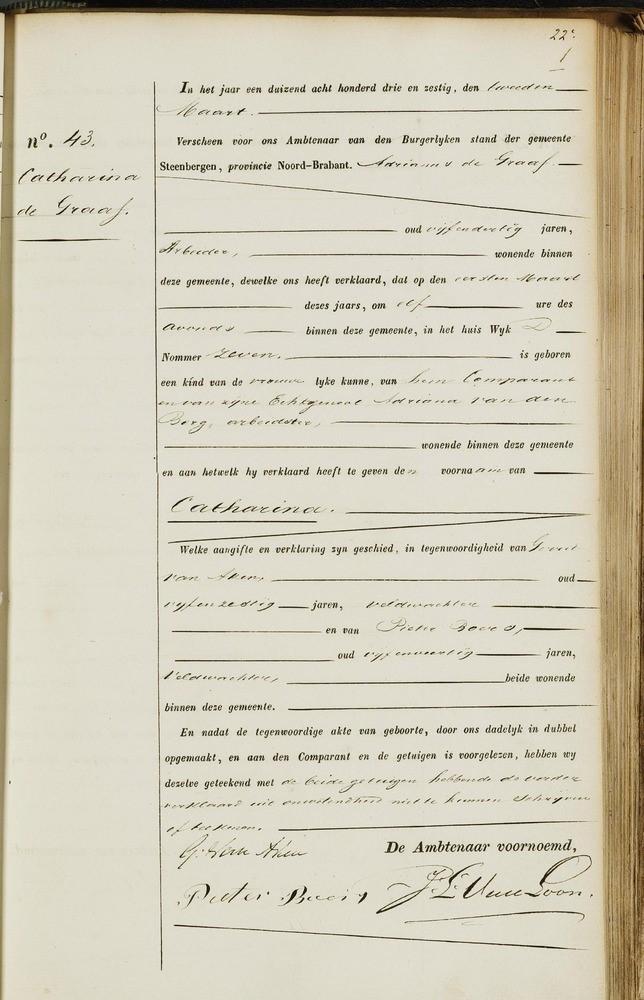 22.
1
nº. 43.
Catharina
de Graaf.
In het jaar een duizend acht honderd drie en zestig, den tweeden
Maart.
Verscheen voor ons Ambtenaar van den Burgerlyken stand der gemeente
Steenbergen, provincie Noord-Brabant. Adrianus de Graaf.
oud vijfendertig jaren,
Arbeider, wonende binnen
deze gemeente, dewelke ons heeft verklaard, dat op den eersten Maart
dezes jaars, om elf ure des
avonds binnen deze gemeente, in het huis Wyk D
Nommer zeven. is geboren
een kind van de vrouwelyke kunne, van hem Comparant
en van zijne Echtgenoot Adriana van den
Berg, arbeidster,
wonende binnen deze gemeente
en aan hetwelk hy verklaard heeft te geven den voornaam van
Catharina.
Welke aangifte en verklaring zyn geschied, in tegenwoordigheid van Gerrit
van Aken, oud
vijfenzestig jaren, veldwachter
en van Pieter Boers,
oud vijfenveertig jaren,
Veldwachter, beide wonende
binnen deze gemeente.
En nadat de tegenwoordige akte van geboorte, door ons dadelyk in dubbel
opgemaakt, en aan den Comparant en de getuigen is voorgelezen, hebben wy
dezelve geteekend met de beide getuigen hebbende de vader
verklaard uit onwetendheid niet te kunnen schrijven
of teekenen.
De Ambtenaar voornoemd,
G. Van Aken
Pieter Boers J. L. Van Loon.